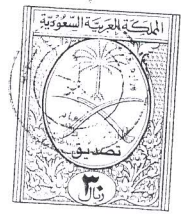 المملكة العربية السعودية
تصديق
٣٠
ريال